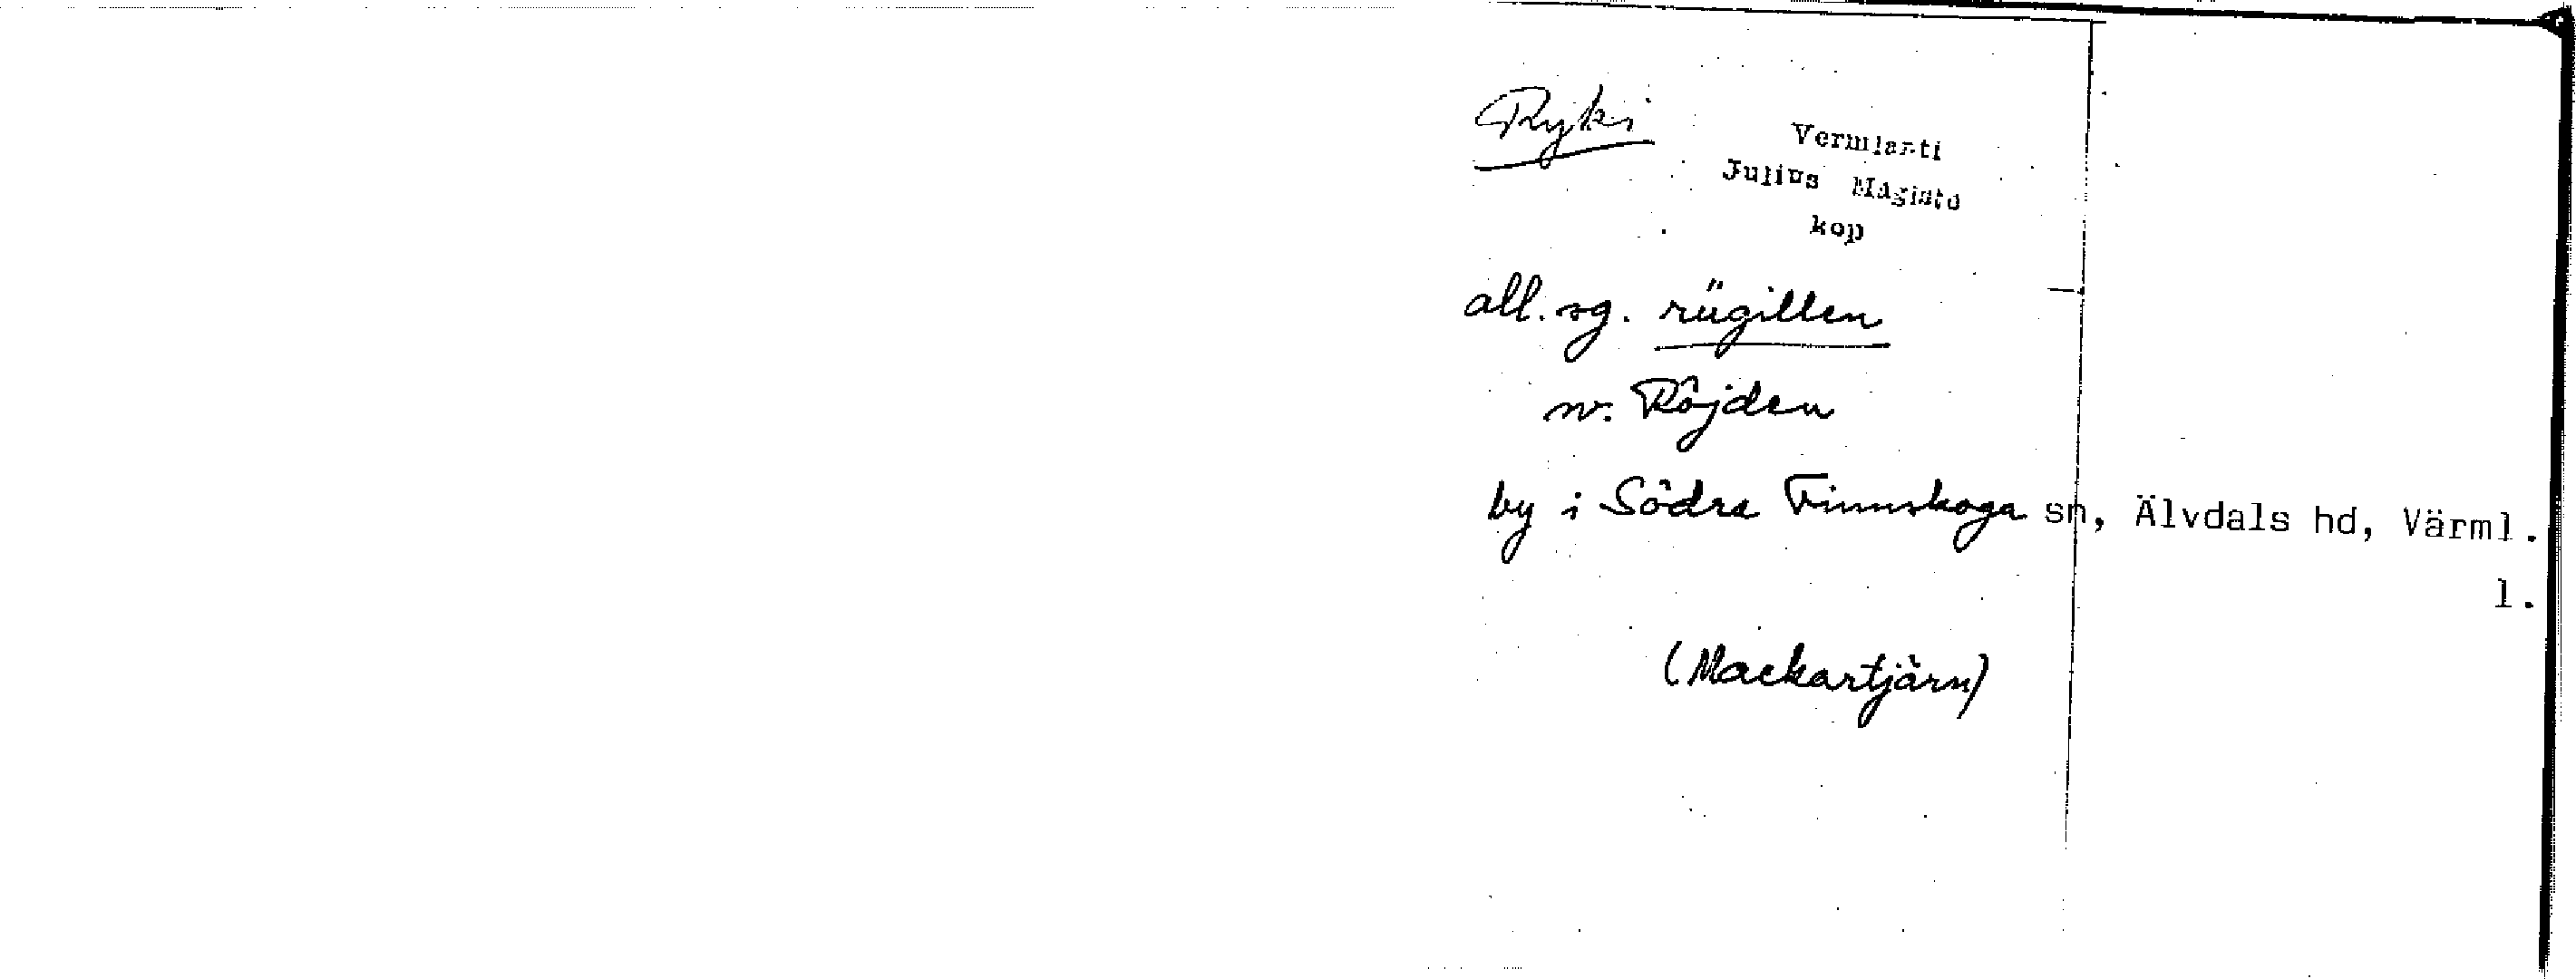 Ryki
Vermlanti
Julius Mägiste
kop
all. sg. rügillen
rv. Röjden
by i Södra Finnskoga sn, Älvdals hd, Värml.
l.
(Mackartjärn)